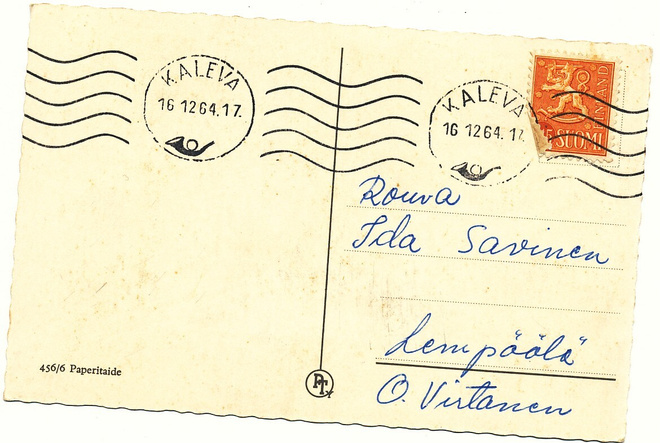 KALEVA
16 12 64.17.
KALEVA
16 12 64.17
SUOMI
Rouva
Ida Savinen
Lempöölä
O. Virtanen
456/6 Paperitaide
PT